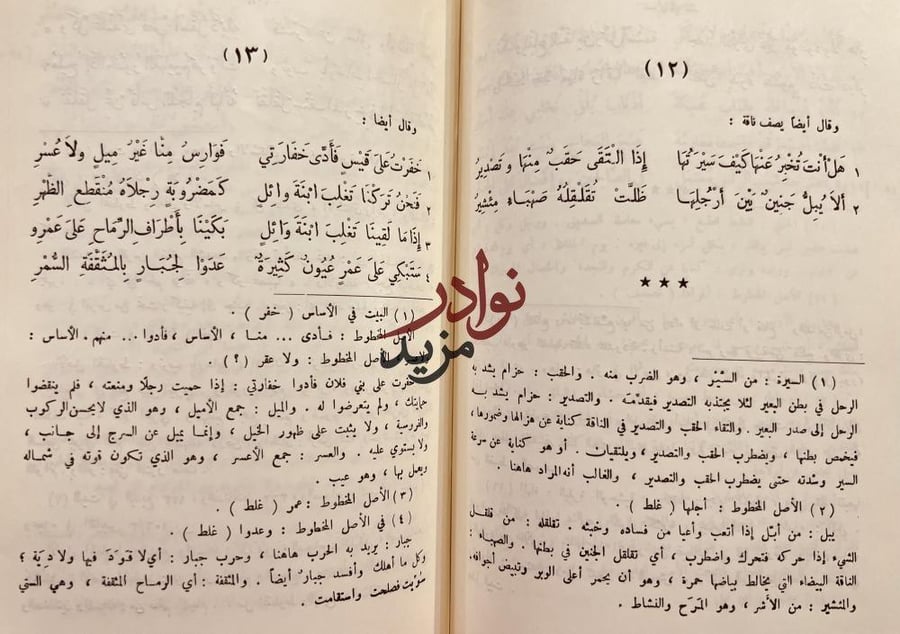 (١٢)
وقال أيضاً يصف ناقة :
١ هَلْ أنْتَ تُخْبِرُ عَنْهَا كَيْفَ سَيْرَتُهَا إِذَا الْتَقَى حَقَبٌ مِنْهَا وَتَصْدِيرُ
٢ ألاَ يُبِلُّ جَنِينٌ بَيْنَ أَرْجُلِهَا ظَلَّتْ تُقَلْقِلُهُ صَهْبَاءُ مِئْشِيرُ
★ ★ ★
(١) السيرة : من السَّيْر ، وهو الضرب منه . والحقب : حزام يشد به
الرحل في بطن البعير لئلا يجتذبه التصدير فيقدمه . والتصدير : حزام يشد بـه
الرحل إلى صدر البعير . والتقاء الحقب والتصدير في الناقة كناية عن هزالها وضمورها ،
فيخمص بطنها ، ويضطرب الحقب والتصدير ، ويلتقيان . أو هو كناية عن سرعة
السير وشدته حتى يضطرب الحقب والتصدير ، والغالب أنه المراد هاهنا .
(٢) الأصل المخطوط : أجلها (غلط) .
يبل : من أبَلّ إذا أتعب وأعيا من فساده وخبثه . تقلقله : من قلقل
الشيء إذا حركه فتحرك واضطرب ، أي تقلقل الجنين في بطنها . والصهباء :
الناقة البيضاء التي يخالط بياضها حمرة ، وهو أن يحمر أعلى الوبر وتبيض أجوافه .
والمئشير : من الأشر ، وهو المَرَح والنشاط .
(١٣)
وقال أيضا :
١ خَفَرْتُ عَلَى قَيْسٍ فَأَدَّى خَفَارَتِي فَوَارِسُ مِنَّا غَيْرُ مِيلٍ وَلاَ عُسْرِ
٢ فَنَحْنُ تَرَكْنَا تَغْلِبَ ابْنَةَ وَائِلٍ كَمَضْرُوبَةٍ رِجْلاَهُ مُنْقَطِعِ الظَّهْرِ
٣ إِذَا مَا لَقِينَا تَغْلِبَ ابْنَةَ وَائِلٍ بَكَيْنَا بِأَطْرَافِ الرِّمَاحِ عَلَى عَمْرِو
٤ سَتَبْكِي عَلَى عَمْرٍو عُيُونٌ كَثِيرَةٌ عَدَوْا لِجُبَارٍ بِالْمُثَقَّفَةِ السُّمْرِ
(١) البيت في الأساس ( خفر ) .
الأصل المخطوط : فـأدى ... منـا ، الأساس ، فأدوا ... منهم . الأساس :
الأصل المخطوط : ولا عقر (؟) .
خفرت على بني فلان فأدوا خفارتي : إذا حميت رجلا ومنعته ، فلم ينقضوا
حمايتك ، ولم يتعرضوا له . والميل : جمع الأميل ، وهو الذي لا يحسن الركوب
والفروسية ، ولا يثبت على ظهور الخيل ، وإنما يميل عن السرج إلى جانب ،
ولا يستوي عليه . والعسر : جمع الأعسر ، وهو الذي تكون قوته في شماله
ويعمل بها ، وهو عيب .
(٣) الأصل المخطوط : عمر ( غلط ) .
(٤) في الأصل المخطوط : وعدوا ( غلط ) .
جبار : يريد به الحرب هاهنا ، وحرب جبار : أي لا قوَدَ فيها ولا دية ؛
وكل ما أهلك وأفسد جبار أيضاً . والمثقفة : أي الرماح المثقفة ، وهي التي
سُوّيت فصلحت واستقامت .
نوادر
مزيد